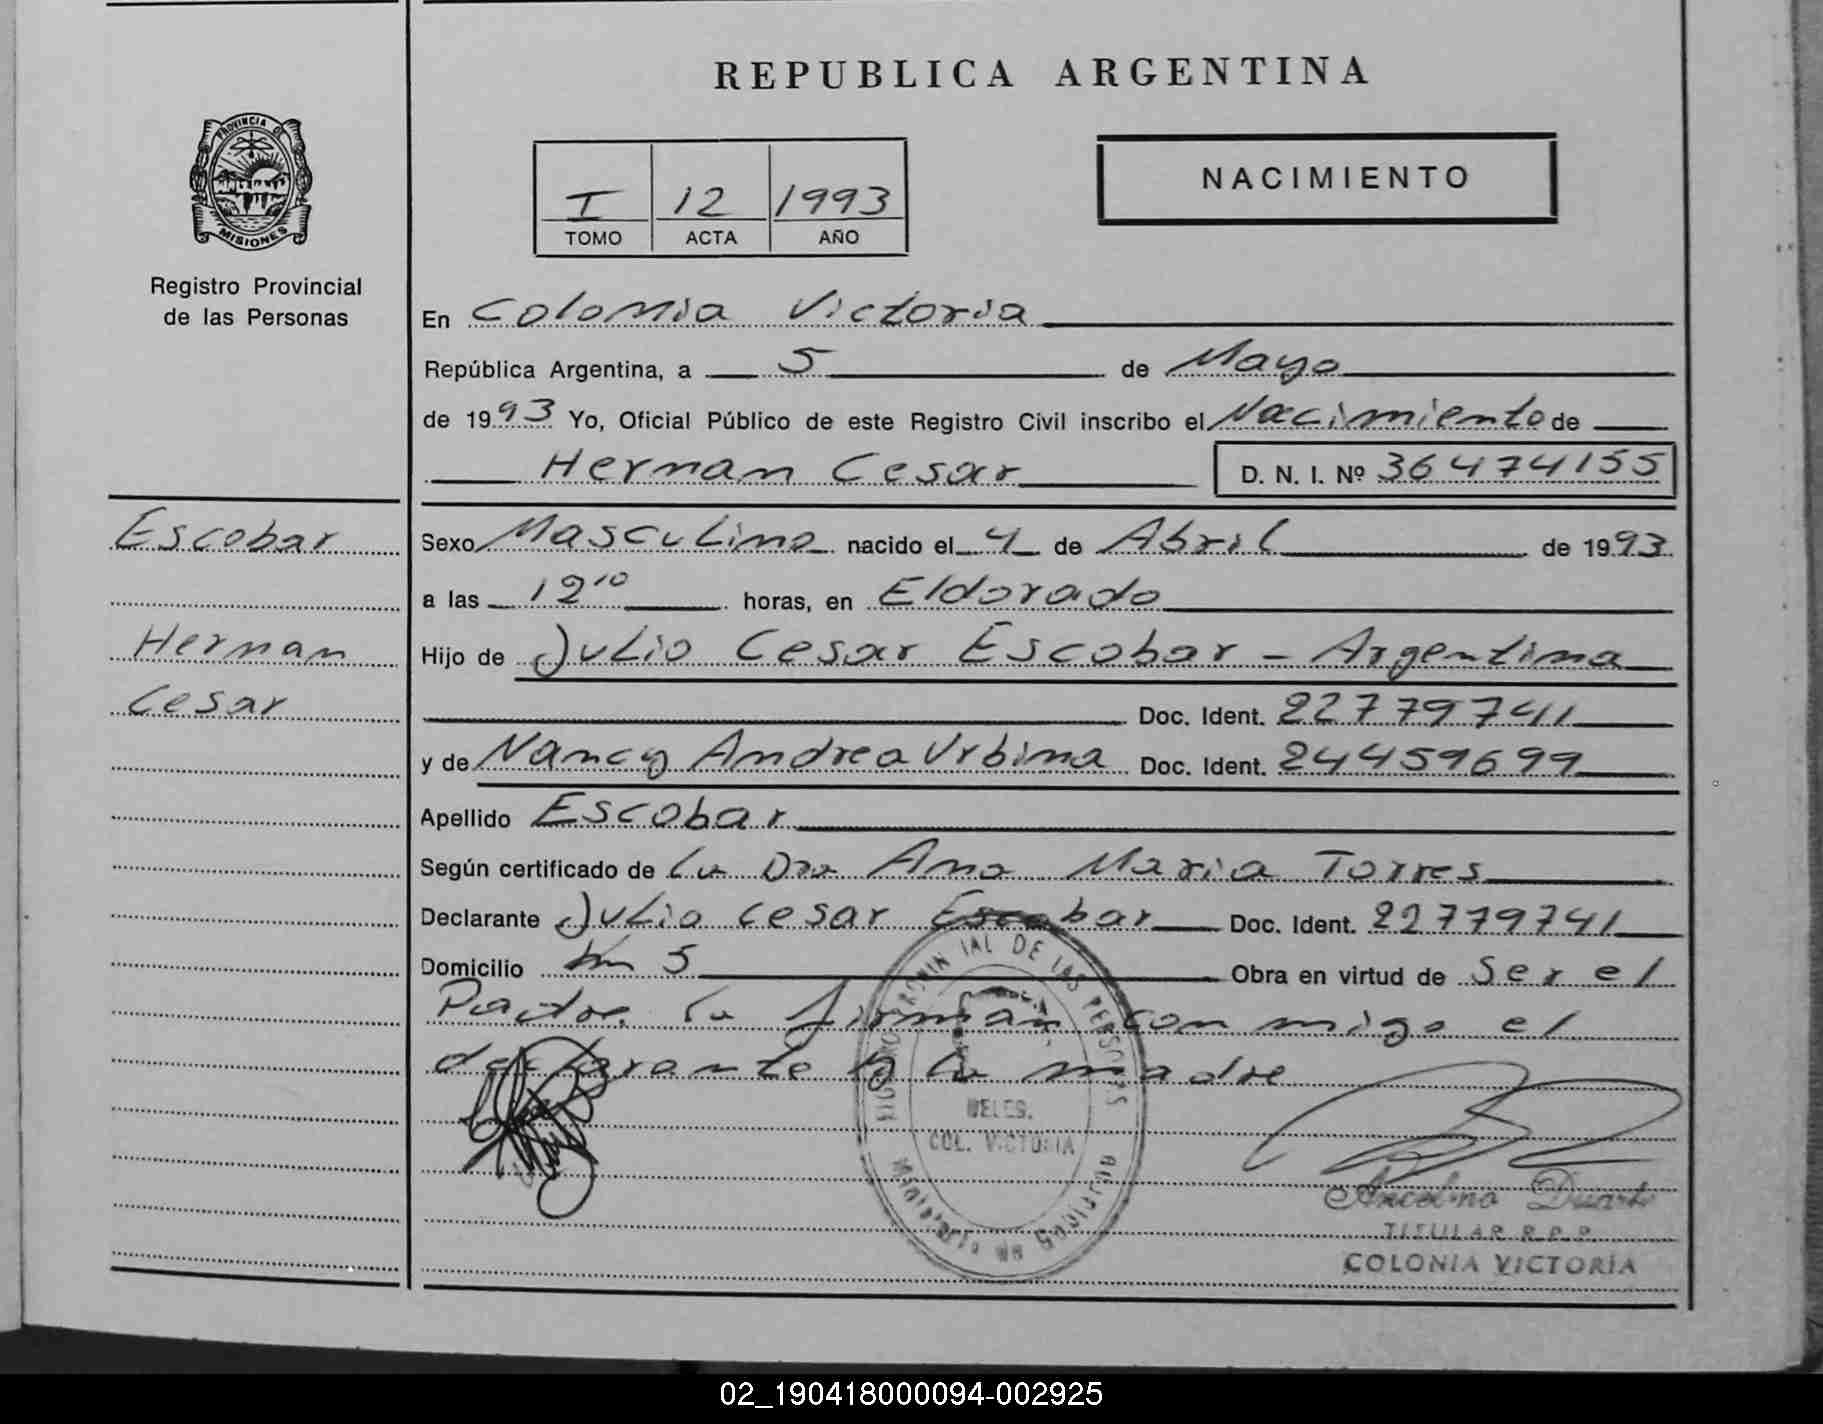 REPUBLICA ARGENTINA
PROVINCIA DE
MISIONES
Registro Provincial
de las Personas
I 12 1993
TOMO ACTA AÑO
NACIMIENTO
En Colonia Victoria
República Argentina, a 5 de Mayo
de 1993 Yo, Oficial Público de este Registro Civil inscribo el Nacimiento de
Hernan Cesar D. N. I. Nº 36474155
Escobar
Hernan
Cesar
Sexo Masculino nacido el 4 de Abril de 1993
a las 12 10 horas, en Eldorado
Hijo de Julio Cesar Escobar - Argentina
Doc. Ident. 22779741
y de Nancy Andrea Urbina Doc. Ident. 24459699
Apellido Escobar
Según certificado de La Dra Ana Maria Torres
Declarante Julio Cesar Escobar Doc. Ident. 22779741
Domicilio km 5 Obra en virtud de Ser el
Padre. La firman con migo el
declarante y la madre
DELEG.
COL. VICTORIA
Ancelmo Duarte
TITULAR R.P.P.
COLONIA VICTORIA
02_190418000094-002925